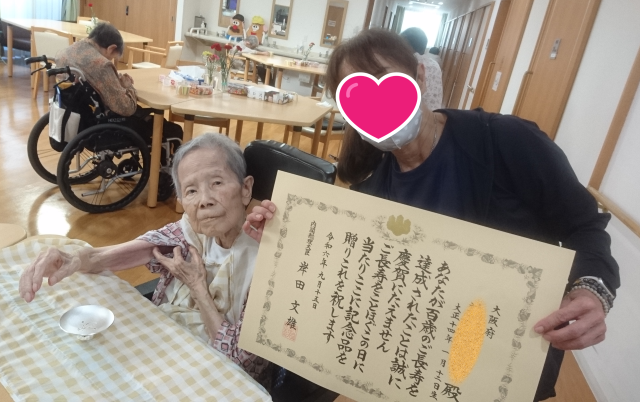 大阪府
殿
大正十四年一月十三日生
あなたが百歳のご長寿を
達成されたことは誠に
慶賀にたえません
ご長寿をことほぐこの日に
当たりここに記念品を
贈りこれを祝します
令和六年九月十五日
内閣総理大臣 岸田文雄